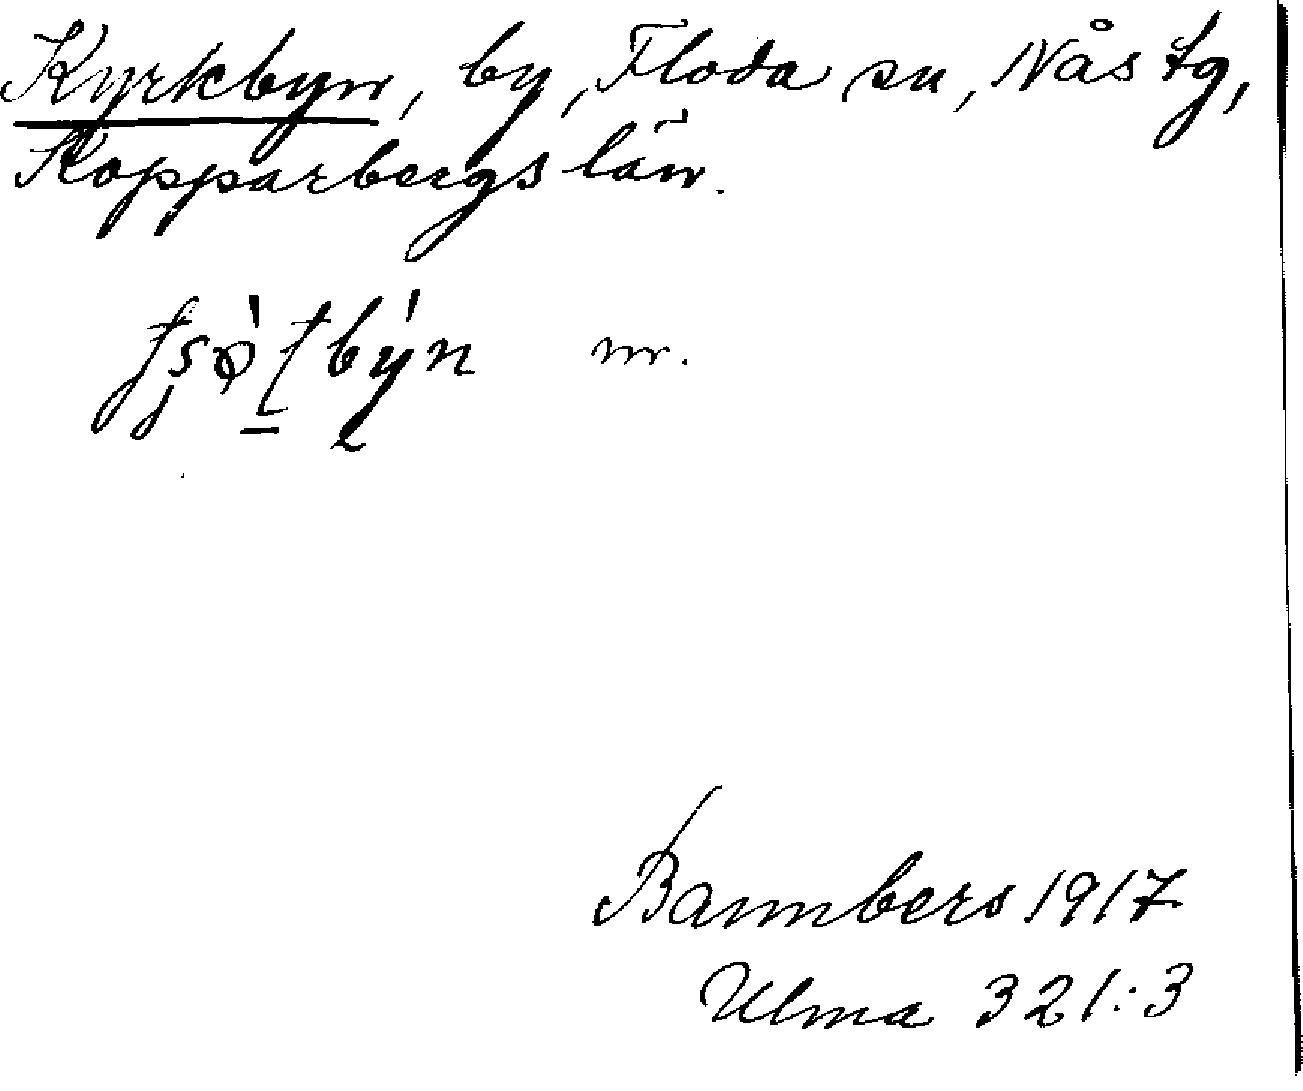 Kyrkbyn, by, Floda sn, Nås tg,
Kopparbergs län.
m.
Bannbers 1917
Ulma 321:3